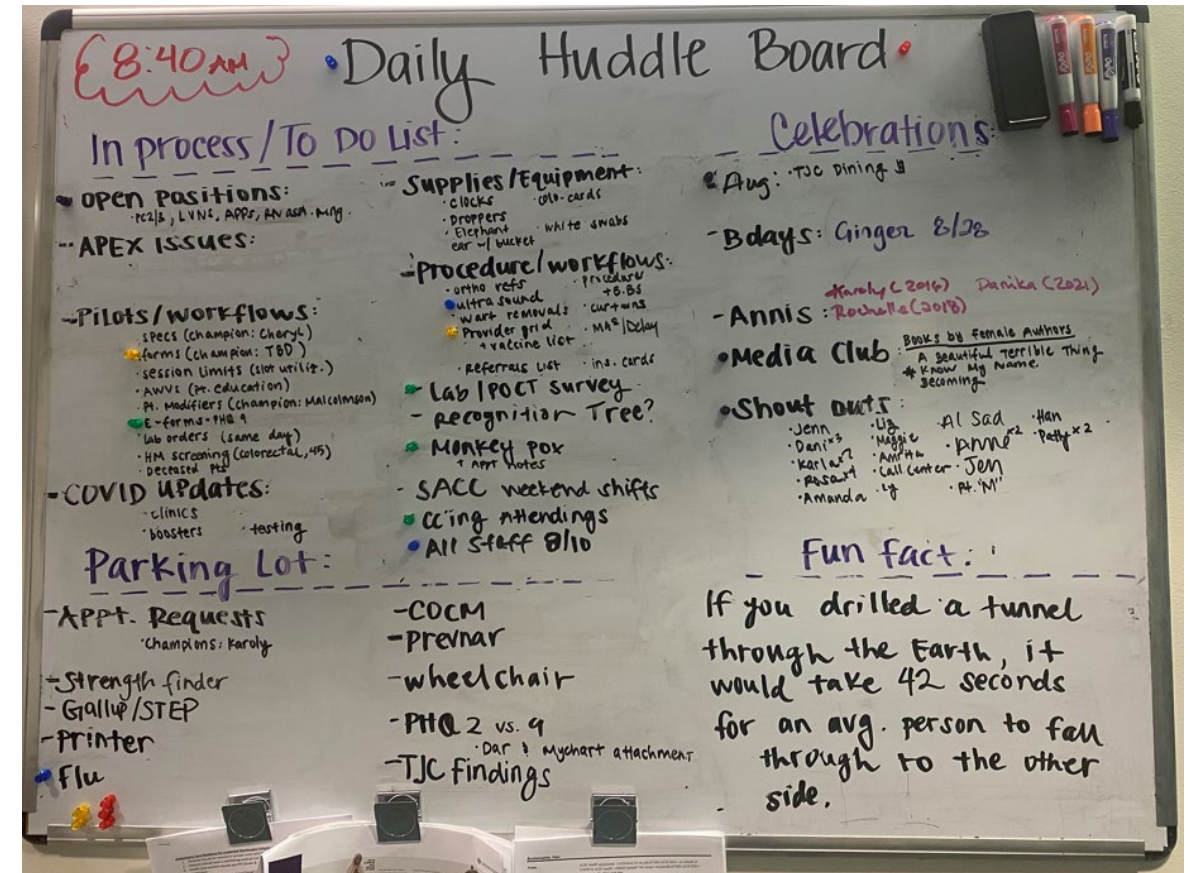 8:40 AM
Daily Huddle Board
In process/To Do List:
- Open Positions:
· PC2/3, LVNs, APPs, RN asst. mng.
- APEX Issues:
- Pilots/workflows:
· specs (champion: Cheryl)
· forms (champion: TBD)
· session limits (slot utiliz.)
· AWVs (pt. education)
· Pt. Modifiers (champion: Malcolmson)
E-forms - PHQ 9
· lab orders (same day)
· HM screening (colorectal, 45)
· Deceased pts
- COVID updates:
· clinics
· boosters · testing
- Supplies/Equipment:
· clocks · colo-cards
· Droppers
· Elephant · white swabs
ear w/ bucket
- Procedure/workflows:
· ortho refs · procedures
ultrasound
· wart removals · curtains
Provider grid
+ vaccine list
· Referrals list · ins. cards
- Lab/POCT survey
- Recognition Tree?
Monkey pox
+ Appt notes
- SACC weekend shifts
CC'ing Attendings
All Staff 8/10
Celebrations:
Aug: · TJC Dining $
- Bdays: Ginger 8/28
Karoly (2016) Danika (2021)
- Annis: Rochelle (2018)
Media Club: Books by Female Authors
A Beautiful Terrible Thing
* Know My Name
Becoming
Shout outs:
· Jenn · Liz · Al Sad · Han
· Dani x3 · Maggie · Anne x2 · Patty x2
· Karla x2 · Amrita
· Rosa x4 · Call Center · Jen
· Amanda · Ly · Pt. "M"
Parking Lot:
- Appt. Requests
· Champions: Karoly
- Strength finder
- Gallup/STEP
- Printer
Flu
- COCM
- Prevnar
- wheelchair
- PHQ 2 vs. 9
· Dar & Mychart attachment
- TJC findings
Fun fact:
If you drilled a tunnel
through the Earth, it
would take 42 seconds
for an avg. person to fall
through to the other
side.